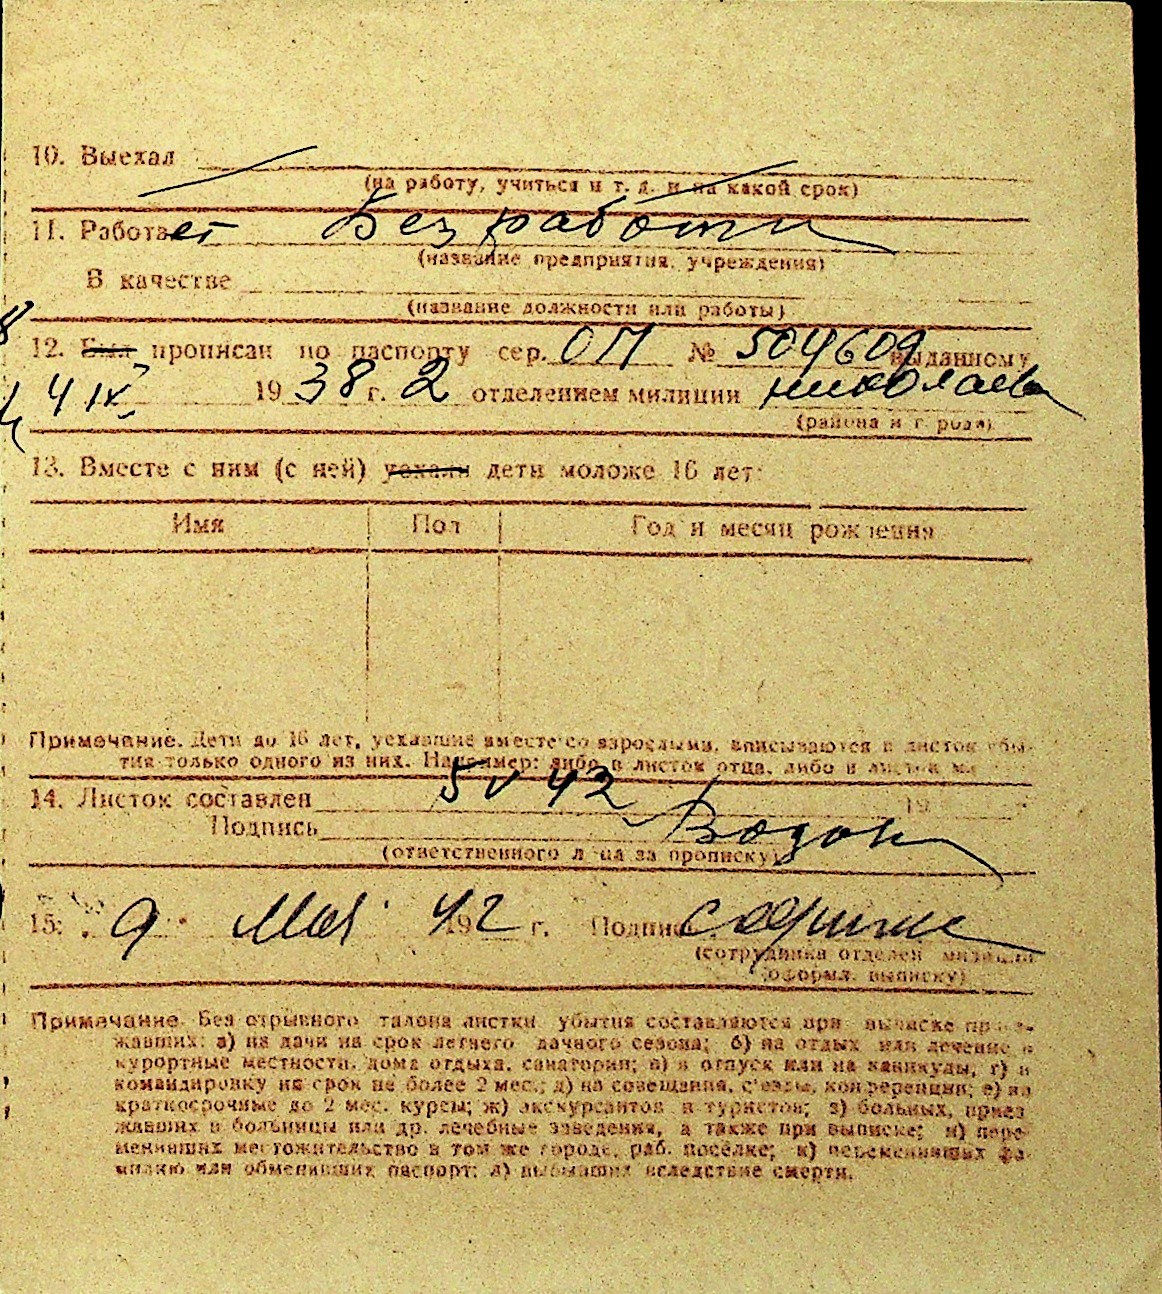 10. Выехал
(на работу, учиться и т. д. и на какой срок)
11. Работает Без работы
(название предприятия, учреждения)
В качестве
(название должности или работы)
12. Был прописан по паспорту сер. ОП № 504609 выданному
4 IV 1938 г. 2 отделением милиции Николаева
(района и города)
13. Вместе с ним (с ней) уехали дети моложе 16 лет:
Имя Пол Год и месяц рождения
Примечание. Дети до 16 лет, уехавшие вместе со взрослыми, вписываются в листок убы-
тия только одного из них. Например: либо в листок отца, либо в листок
14. Листок составлен 5 V 42 19
Подпись
(ответственного лица за прописку)
15. 9 Мая 1942 г. Подпись
(сотрудника отделен. милиции
оформл. выписку)
Примечание. Без отрывного талона листки убытия составляются при выписке приез-
жавших: а) на дачи на срок летнего дачного сезона; б) на отдых или лечение в
курортные местности, дома отдыха, санатории; в) в отпуск или на каникулы; г) в
командировку на срок не более 2 мес.; д) на совещания, съезды, конференции; е) на
краткосрочные до 2 мес. курсы; ж) экскурсантов и туристов; з) больных, приез-
жавших в больницы или др. лечебные заведения, а также при выписке; и) пере-
менивших местожительство в том же городе, раб. посёлке; к) переменивших фа-
милию или обменивших паспорт; л) выбывших вследствие смерти.